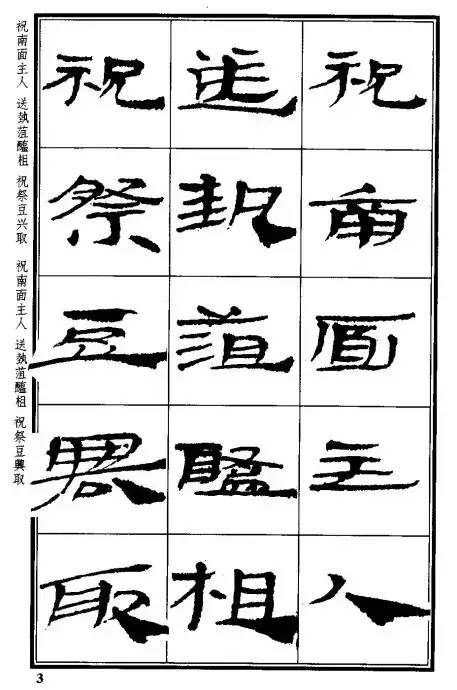 祝南面主人
送埶菹醯柤
祝祭豆興取
祝南面主人 送埶菹醯柤 祝祭豆兴取
祝南面主人 送埶菹醯柤 祝祭豆興取
3